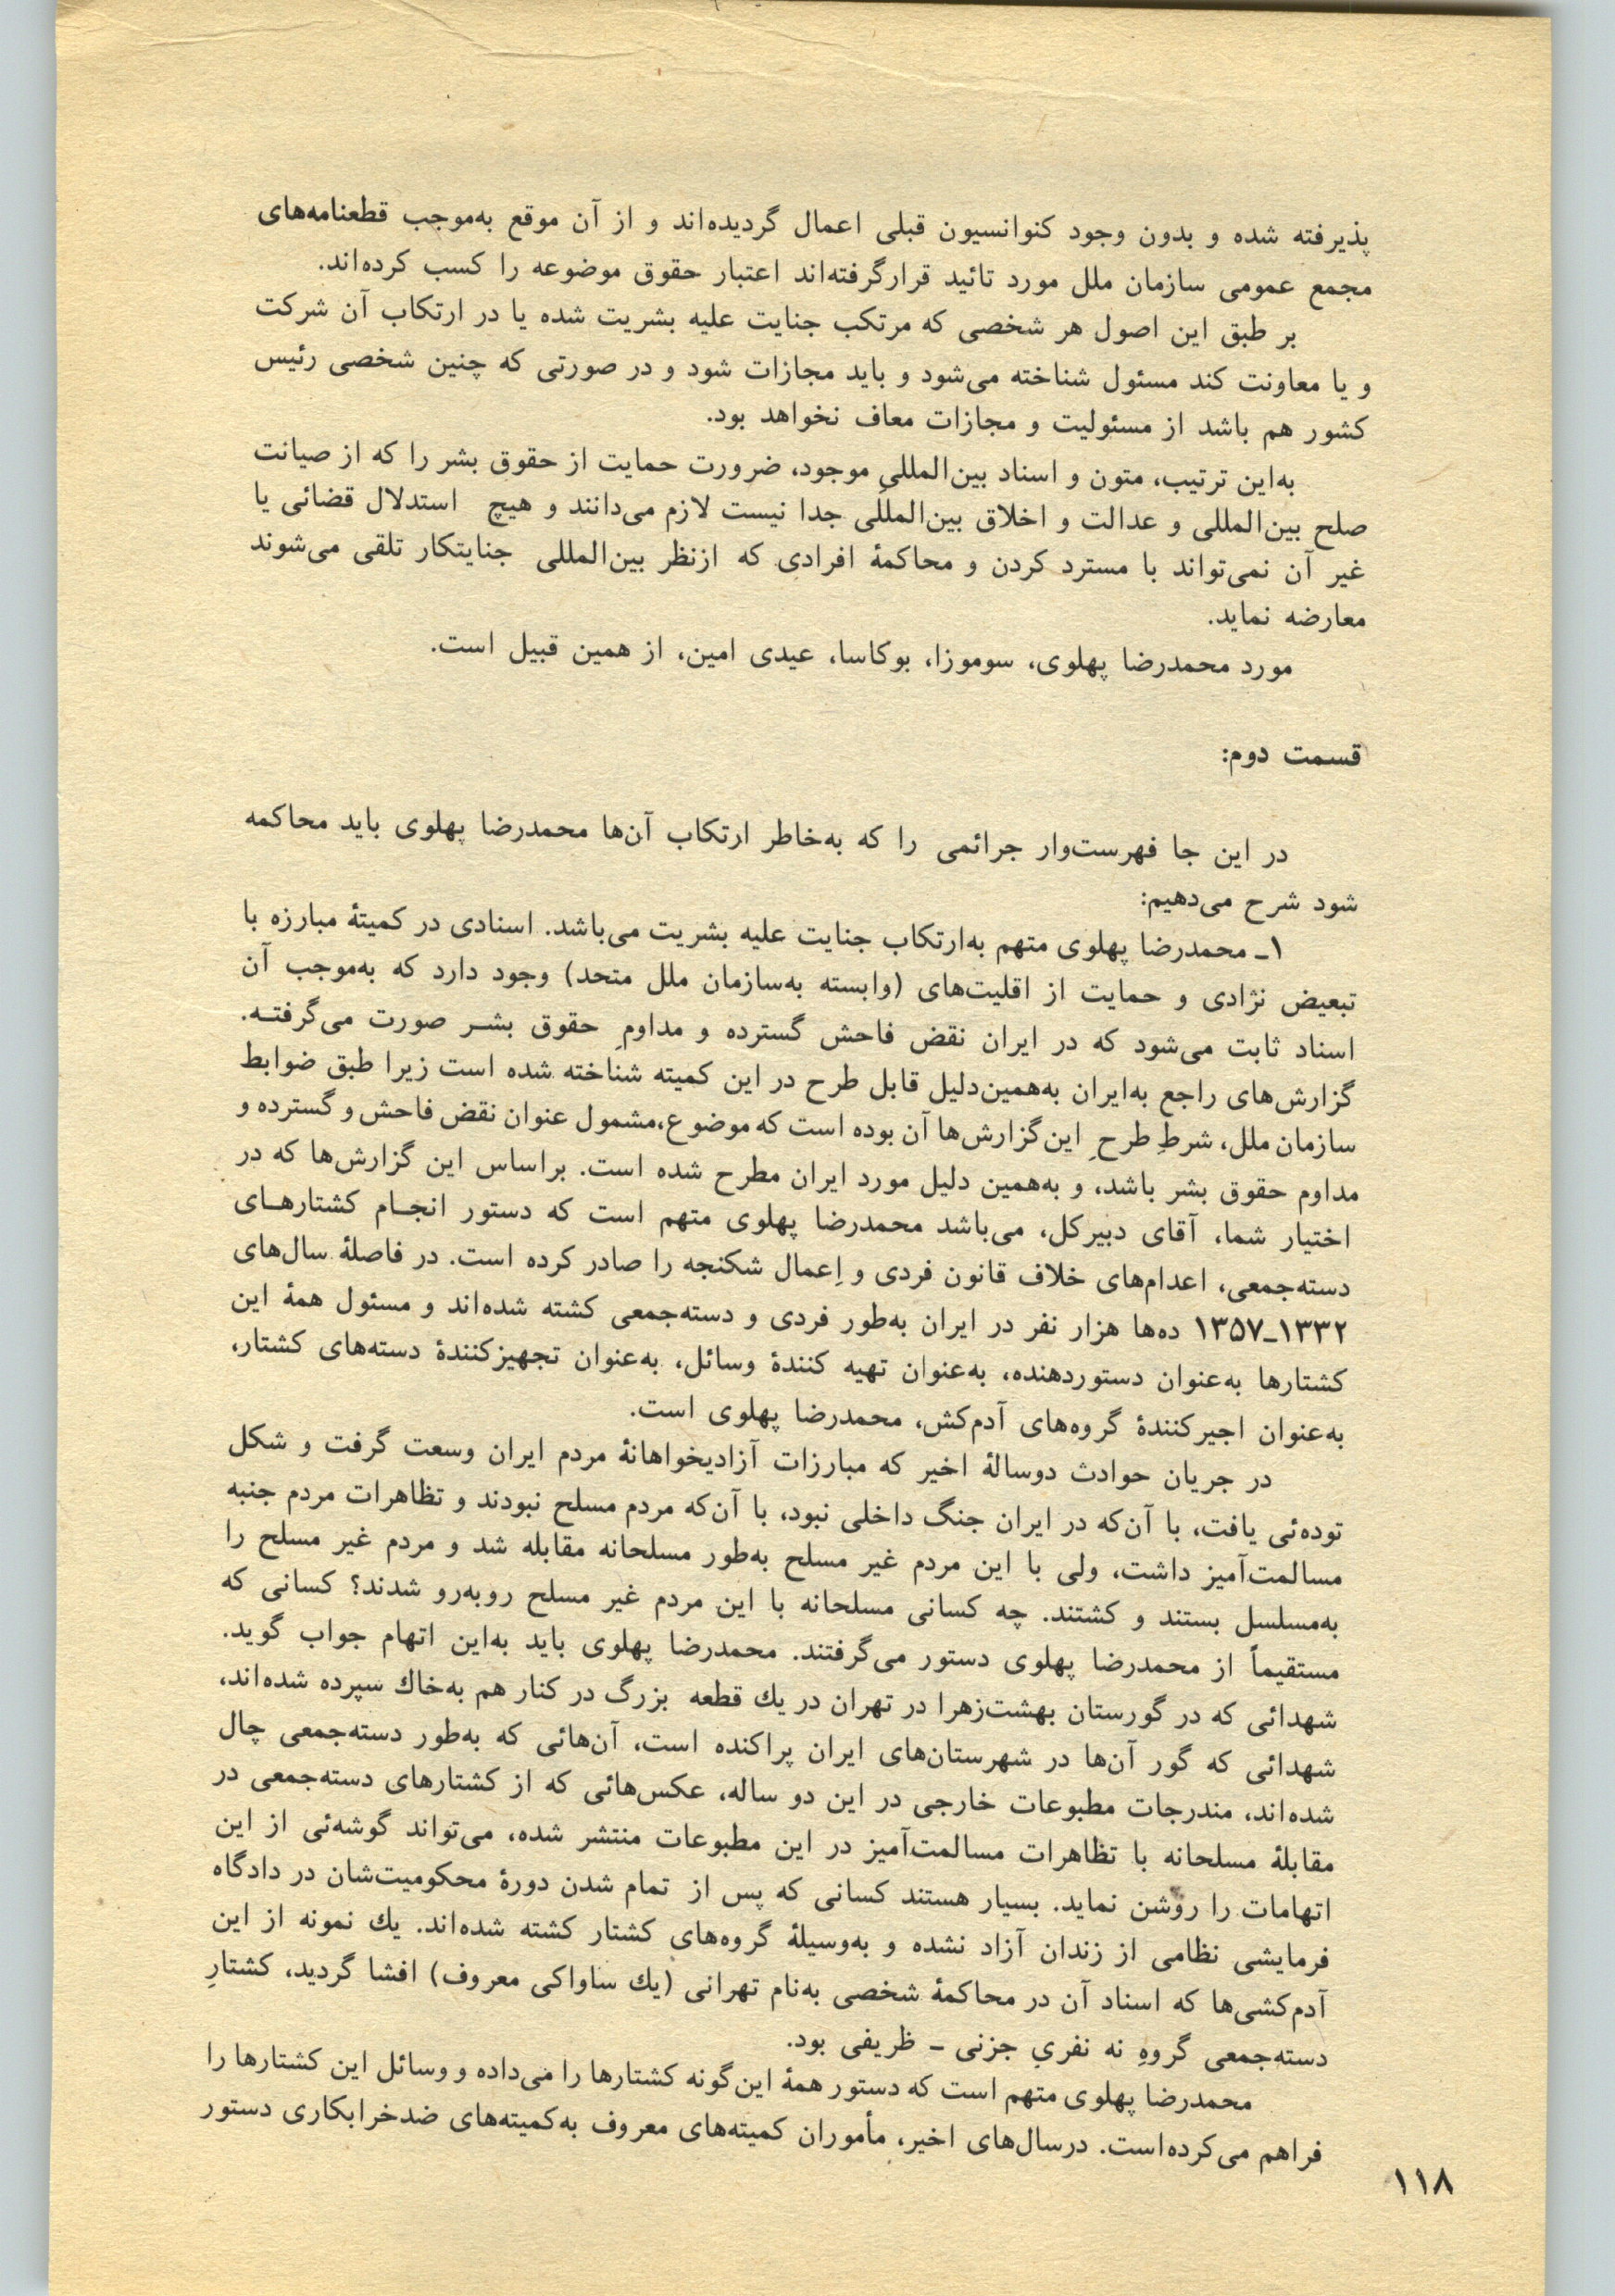 پذیرفته شده و بدون وجود کنوانسیون قبلی اعمال گردیده‌اند و از آن موقع به‌موجب قطعنامه‌های
مجمع عمومی سازمان ملل مورد تائید قرارگرفته‌اند اعتبار حقوق موضوعه را کسب کرده‌اند.
بر طبق این اصول هر شخصی که مرتکب جنایت علیه بشریت شده یا در ارتکاب آن شرکت
و یا معاونت کند مسئول شناخته می‌شود و باید مجازات شود و در صورتی که چنین شخصی رئیس
کشور هم باشد از مسئولیت و مجازات معاف نخواهد بود.
به‌این ترتیب، متون و اسناد بین‌المللیِ موجود، ضرورت حمایت از حقوق بشر را که از صیانت
صلح بین‌المللی و عدالت و اخلاق بین‌المللی جدا نیست لازم می‌دانند و هیچ استدلال قضائی یا
غیر آن نمی‌تواند با مسترد کردن و محاکمهٔ افرادی که ازنظر بین‌المللی جنایتکار تلقی می‌شوند
معارضه نماید.
مورد محمدرضا پهلوی، سوموزا، بوکاسا، عیدی امین، از همین قبیل است.
قسمت دوم:
در این جا فهرست‌وار جرائمی را که به‌خاطر ارتکاب آن‌ها محمدرضا پهلوی باید محاکمه
شود شرح می‌دهیم:
۱ـ محمدرضا پهلوی متهم به‌ارتکاب جنایت علیه بشریت می‌باشد. اسنادی در کمیتهٔ مبارزه با
تبعیض نژادی و حمایت از اقلیت‌های (وابسته به‌سازمان ملل متحد) وجود دارد که به‌موجب آن
اسناد ثابت می‌شود که در ایران نقض فاحش گسترده و مداومِ حقوق بشـر صورت می‌گرفتـه.
گزارش‌های راجع به‌ایران به‌همین‌دلیل قابل طرح در این کمیته شناخته شده است زیرا طبق ضوابط
سازمان ملل، شرطِ طرحِ این گزارش‌ها آن بوده است که موضوع،مشمول عنوان نقض فاحش و گسترده و
مداوم حقوق بشر باشد، و به‌همین دلیل مورد ایران مطرح شده است. براساس این گزارش‌ها که در
اختیار شما، آقای دبیرکل، می‌باشد محمدرضا پهلوی متهم است که دستور انجـام کشتارهـای
دسته‌جمعی، اعدام‌های خلاف قانون فردی و اِعمال شکنجه را صادر کرده است. در فاصلهٔ سال‌های
۱۳۳۲ـ۱۳۵۷ ده‌ها هزار نفر در ایران به‌طور فردی و دسته‌جمعی کشته شده‌اند و مسئول همهٔ این
کشتارها به‌عنوان دستوردهنده، به‌عنوان تهیه کنندهٔ وسائل، به‌عنوان تجهیزکنندهٔ دسته‌های کشتار،
به‌عنوان اجیرکنندهٔ گروه‌های آدم‌کش، محمدرضا پهلوی است.
در جریان حوادث دوسالهٔ اخیر که مبارزات آزادیخواهانهٔ مردم ایران وسعت گرفت و شکل
توده‌ئی یافت، با آن‌که در ایران جنگ داخلی نبود، با آن‌که مردم مسلح نبودند و تظاهرات مردم جنبه
مسالمت‌آمیز داشت، ولی با این مردم غیر مسلح به‌طور مسلحانه مقابله شد و مردم غیر مسلح را
به‌مسلسل بستند و کشتند. چه کسانی مسلحانه با این مردم غیر مسلح روبه‌رو شدند؟ کسانی که
مستقیماً از محمدرضا پهلوی دستور می‌گرفتند. محمدرضا پهلوی باید به‌این اتهام جواب گوید.
شهدائی که در گورستان بهشت‌زهرا در تهران در یك قطعه بزرگ در کنار هم به‌خاك سپرده شده‌اند،
شهدائی که گور آن‌ها در شهرستان‌های ایران پراکنده است، آن‌هائی که به‌طور دسته‌جمعی چال
شده‌اند، مندرجات مطبوعات خارجی در این دو ساله، عکس‌هائی که از کشتارهای دسته‌جمعی در
مقابلهٔ مسلحانه با تظاهرات مسالمت‌آمیز در این مطبوعات منتشر شده، می‌تواند گوشه‌ئی از این
اتهامات را روشن نماید. بسیار هستند کسانی که پس از تمام شدن دورهٔ محکومیت‌شان در دادگاه
فرمایشی نظامی از زندان آزاد نشده و به‌وسیلهٔ گروه‌های کشتار کشته شده‌اند. یك نمونه از این
آدم‌کشی‌ها که اسناد آن در محاکمهٔ شخصی به‌نام تهرانی (یك ساواکی معروف) افشا گردید، کشتارِ
دسته‌جمعی گروهِ نه نفریِ جزنی ـ ظریفی بود.
محمدرضا پهلوی متهم است که دستور همهٔ این‌گونه کشتارها را می‌داده و وسائل این کشتارها را
فراهم می‌کرده‌است. درسال‌های اخیر، مأموران کمیته‌های معروف به‌کمیته‌های ضدخرابکاری دستور
۱۱۸